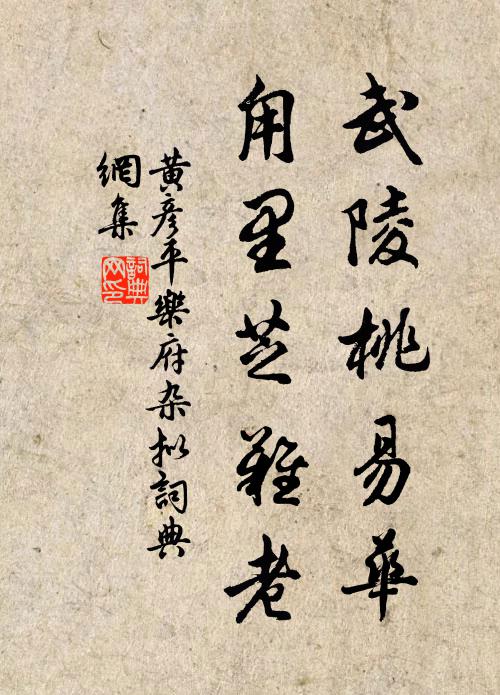 武陵桃易華
甪里芝難老
黃彥平樂府杂拟詞典
網集
詞典
网印